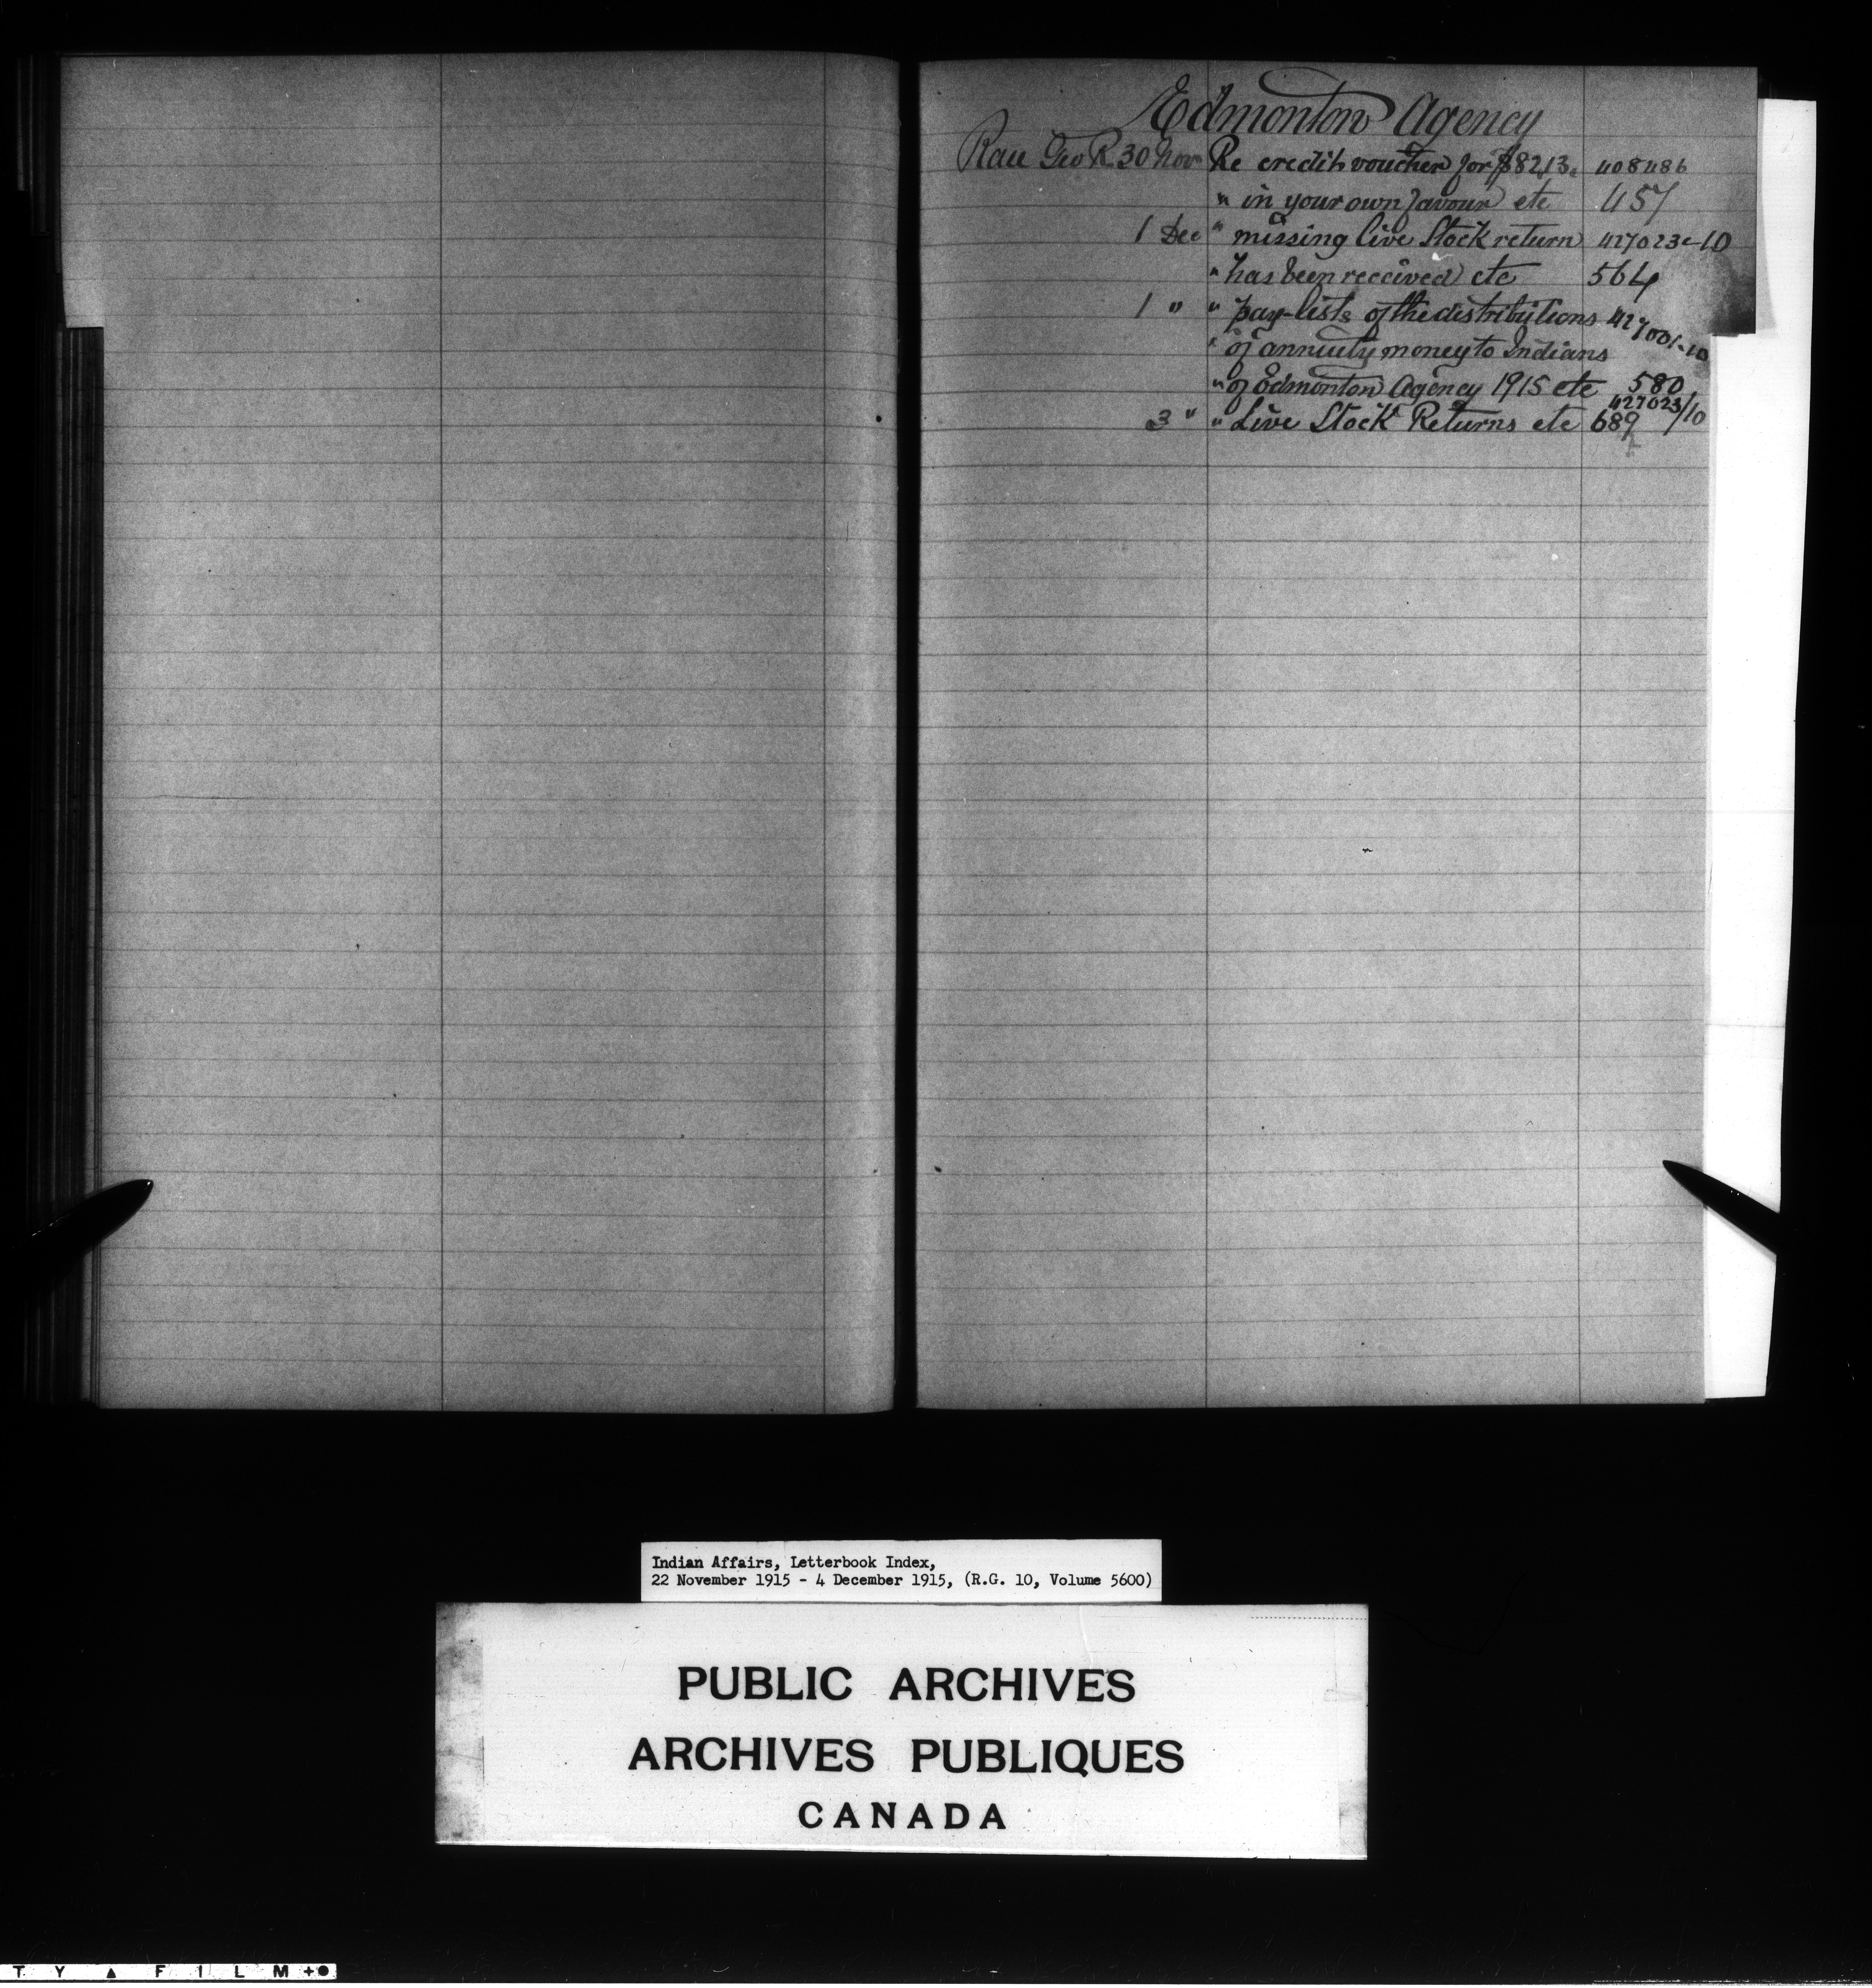 Edmonton Agency
Geo R. 30 Nov Re credit voucher for 408486
" in your own favour etc 457
1 Dec " missing live Stock return 427023-10
" has been received etc 564
1 " " pay-lists of the distributions 427001-10
" of annuity money to Indians
" of Edmonton Agency 1915 etc 580
427023/10
3 " " Live Stock Returns etc 689
Indian Affairs, Letterbook Index,
22 November 1915 - 4 December 1915, (R.G. 10, Volume 5600)
PUBLIC ARCHIVES
ARCHIVES PUBLIQUES
CANADA
T Y ▲ F I L M +●